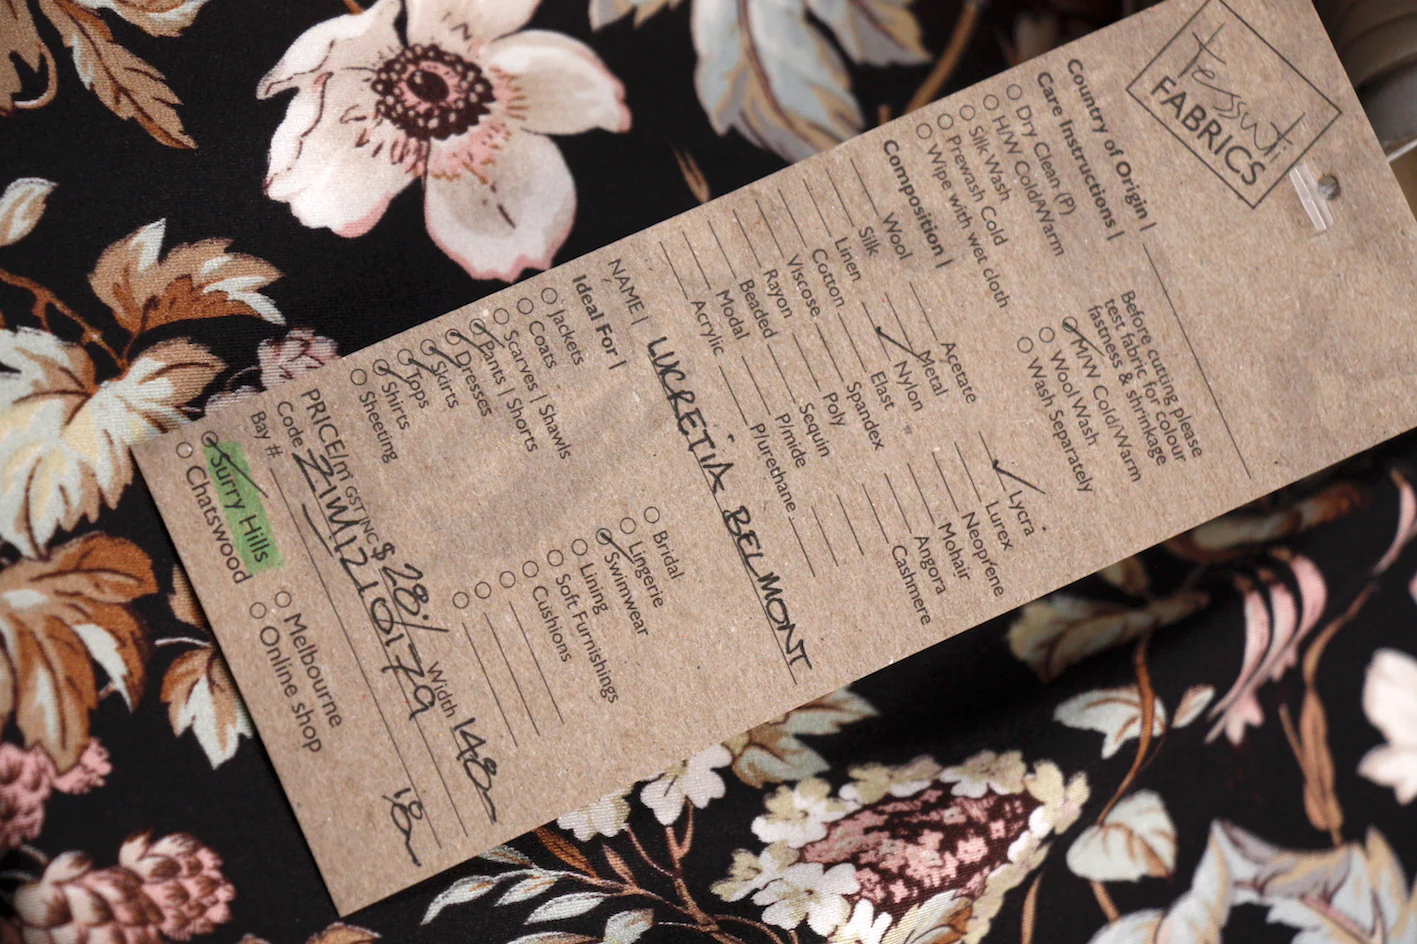 Tessuti
FABRICS
Country of Origin |
Care Instructions |
Dry Clean (P)
H/W Cold/Warm
Silk Wash
Prewash Cold
Wipe with wet cloth
Before cutting please
test fabric for colour
fastness & shrinkage
M/W Cold/Warm
Wool Wash
Wash Separately
Composition |
Wool Acetate Lycra
Silk Metal Lurex
Linen Nylon Neoprene
Cotton Elast Mohair
Viscose Spandex Angora
Rayon Poly Cashmere
Beaded Sequin
Modal P/mide
Acrylic P/urethane
NAME | LUCRETIA BELMONT
Ideal For |
Jackets Bridal
Coats Lingerie
Scarves | Shawls Swimwear
Pants | Shorts Lining
Dresses Soft Furnishings
Skirts Cushions
Tops
Shirts
Sheeting
PRICE/m GST INC $ 28./ Width 148
Code 21W1210179
Bay #
Surry Hills Melbourne
Chatswood Online shop